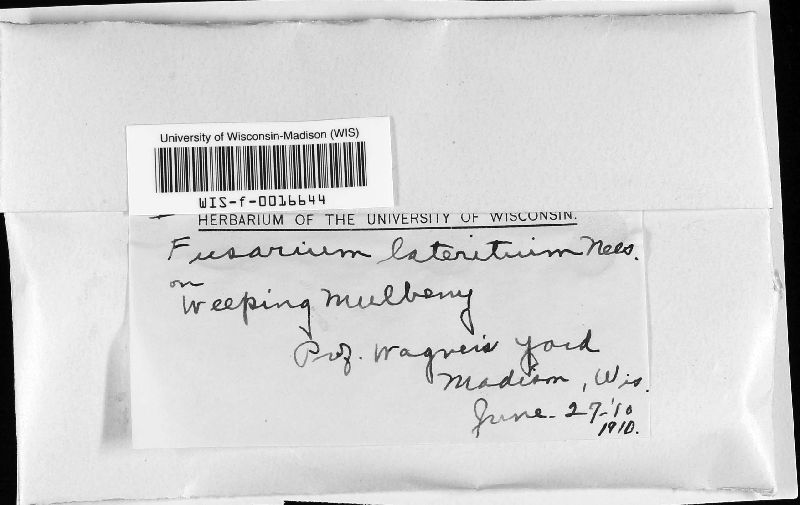 University of Wisconsin-Madison (WIS)
WIS-f-0016644
HERBARIUM OF THE UNIVERSITY OF WISCONSIN.
Fusarium lateritium Nees.
on
Weeping Mulberry
Prof. Wagner's Yard
Madison, Wis.
June. 27-'10
1910.